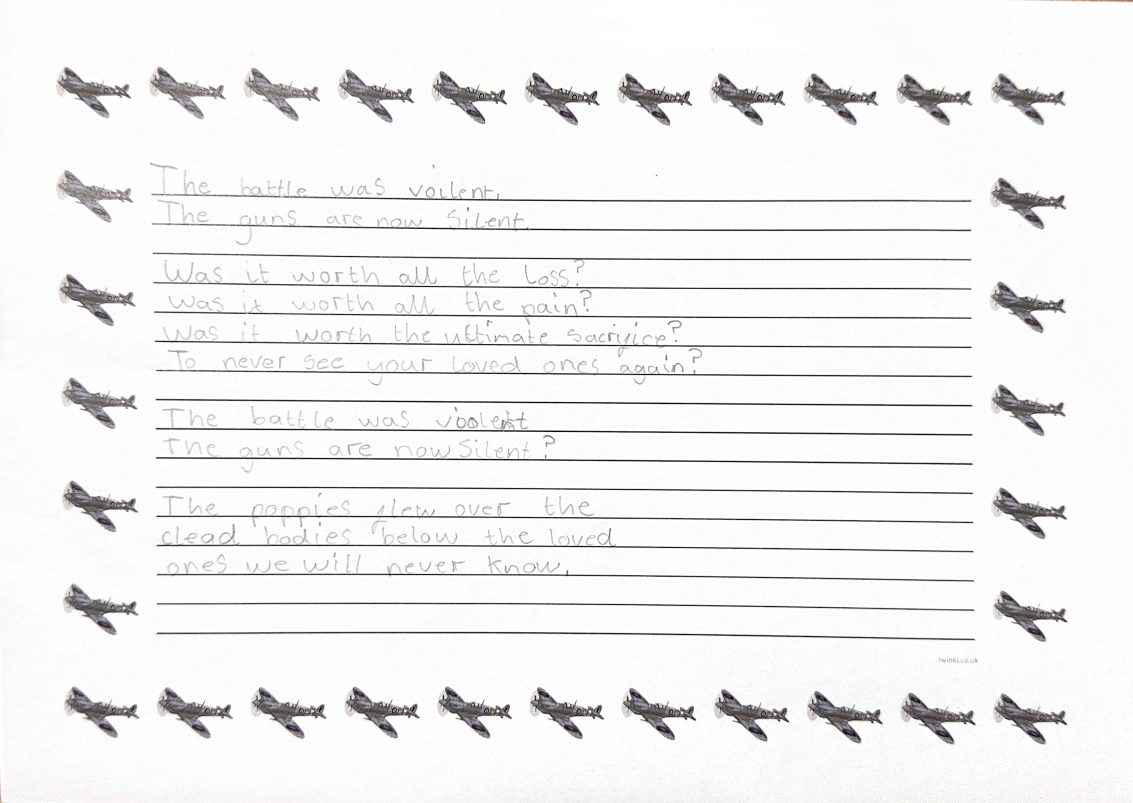 The battle was voilent,
The guns are now silent.
Was it worth all the loss?
Was it worth all the pain?
Was it worth the ultimate sacrifice?
To never see your loved ones again?
The battle was voolent
The guns are now silent?
The poppies flew over the
dead bodies below the loved
ones we will never know.
twinkl.co.uk